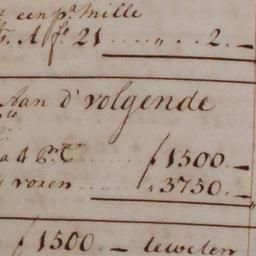 een pr. Mille
fo. 21 ..... „ .. 2. –
Aan d'volgende
a 4 Pr. Ct. ..... ƒ 1500. –
voren ...... „ 3750. –
ƒ 1500. – tewelen